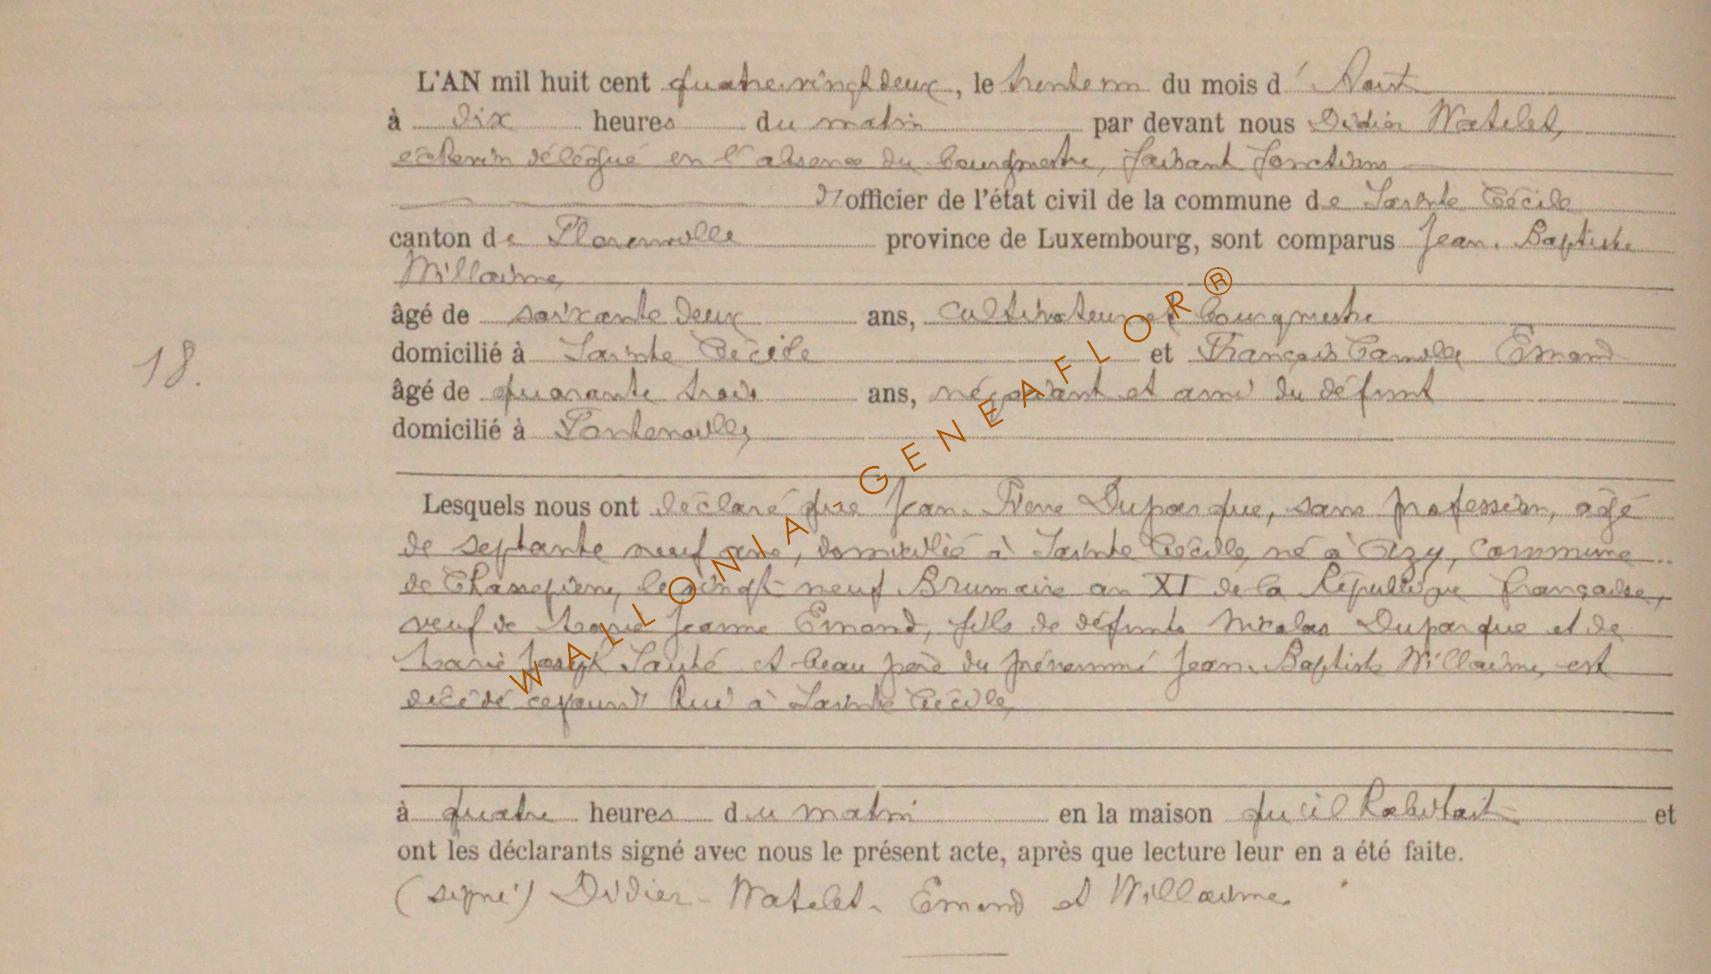 L'AN mil huit cent quatre-vingt deux, le trente un du mois d' Août
à dix heures du matin par devant nous Didier Watelet,
échevin délégué en l'absence du bourgmestre, faisant fonctions
d'officier de l'état civil de la commune de Sainte Cécile
canton de Florenville province de Luxembourg, sont comparus Jean-Baptiste
Willaime,
âgé de soixante deux ans, cultivateur et bourgmestre
domicilié à Sainte Cécile et François Camille Emond
18.
âgé de quarante trois ans, négociant et ami du défunt
domicilié à Fontenoille,
Lesquels nous ont déclaré que Jean-Pierre Duparque, sans profession, agé
de septante neuf ans, domicilié à Sainte Cécile, né à Izy, commune
de Chassepierre, le vingt-neuf Brumaire an XI de la République française,
veuf de Marie Jeanne Emond, fils de défunts Nicolas Duparque et de
Marie Joseph Sauté et beau père du prénommé Jean-Baptiste Willaime, est
décédé cejourd'hui à Sainte Cécile,
à quatre heures du matin en la maison qu'il habitait et
ont les déclarants signé avec nous le présent acte, après que lecture leur en a été faite.
(signé) Didier-Watelet. Emond et Willaime.
WALLONIA-GENEAFLOR®